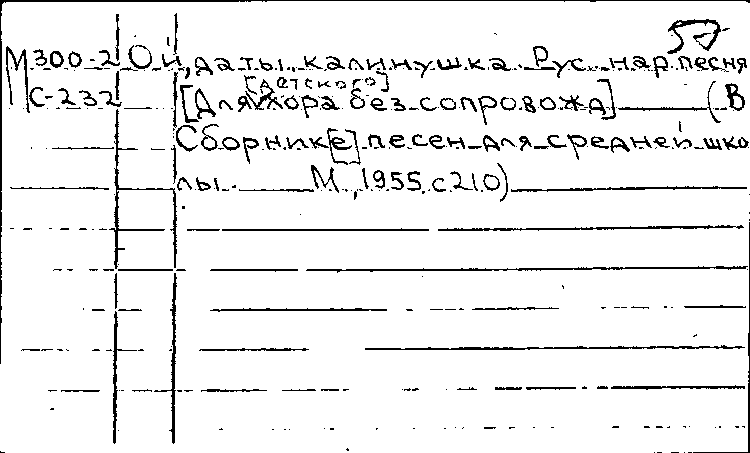 57
М300-2 Ой, да ты, калинушка. Рус. нар. песня
[детского]
С-232 [Для хора без сопровожд] (В
Сборник[е] песен для средней шко
лы. М, 1955, с 210)